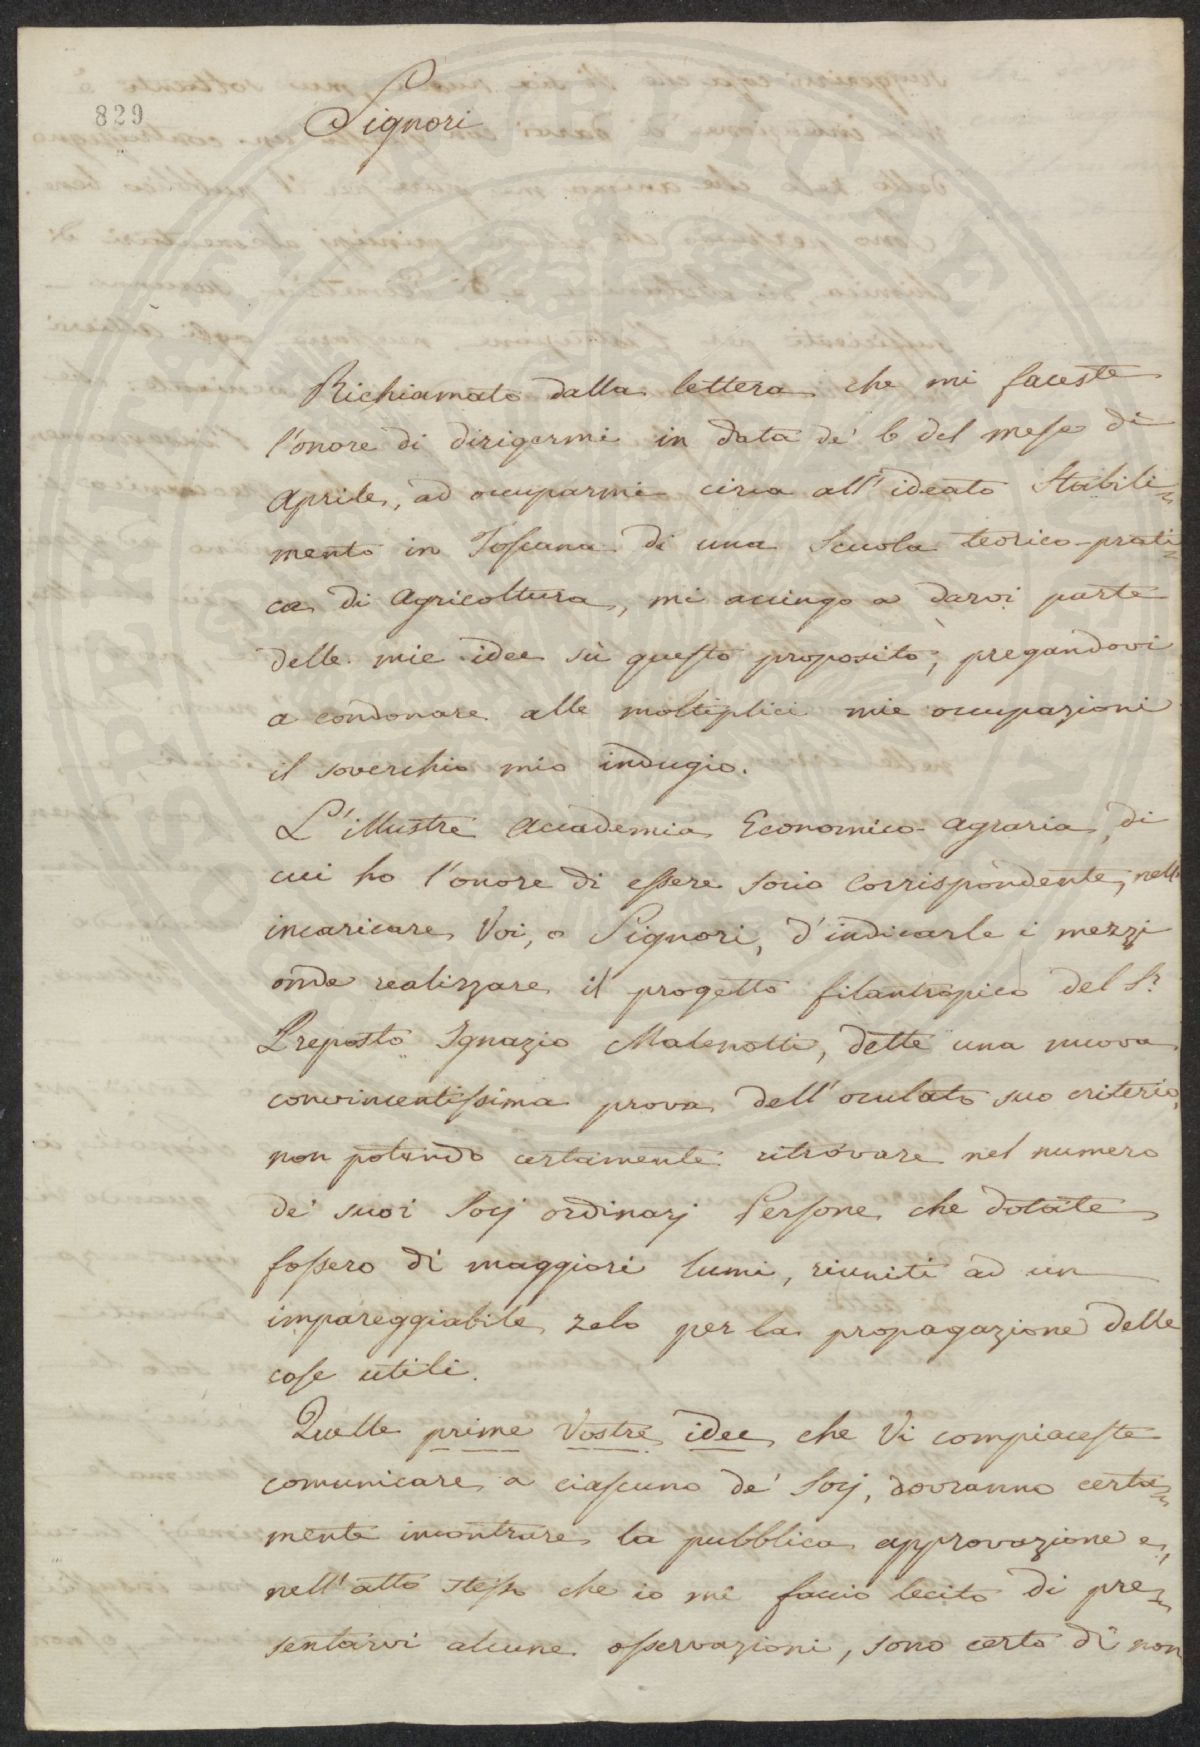 829
Signori
Richiamato dalla lettera che mi faceste
l'onore di dirigermi in data de' 6 del mese di
Aprile, ad occuparmi circa all'ideato Stabili=
mento in Toscana di una Scuola teorico-prati=
ca di Agricoltura, mi accingo a darvi parte
delle mie idee sù questo proposito, pregandovi
a condonare alle moltiplici mie occupazioni
il soverchio mio indugio.
L'illustre Accademia Economico-Agraria, di
cui ho l'onore di essere socio corrispondente, nell'
incaricare Voi, o Signori, d'indicarle i mezzi
onde realizzare il progetto filantropico del S.r
Preposto Ignazio Malenotti, dette una nuova
convincentissima prova dell'oculato suo criterio,
non potendo certamente ritrovare nel numero
dei suoi Socij ordinarj Persone che dotate
fossero di maggiori lumi, riuniti ad un
impareggiabile zelo per la propagazione delle
cose utili.
Quelle prime Vostre idee che Vi compiaceste
comunicare a ciascuno de' Socij, dovranno certa=
mente incontrare la pubblica approvazione e,
nell'atto stesso che io mi faccio lecito di pre=
sentarvi alcune osservazioni, sono certo di non